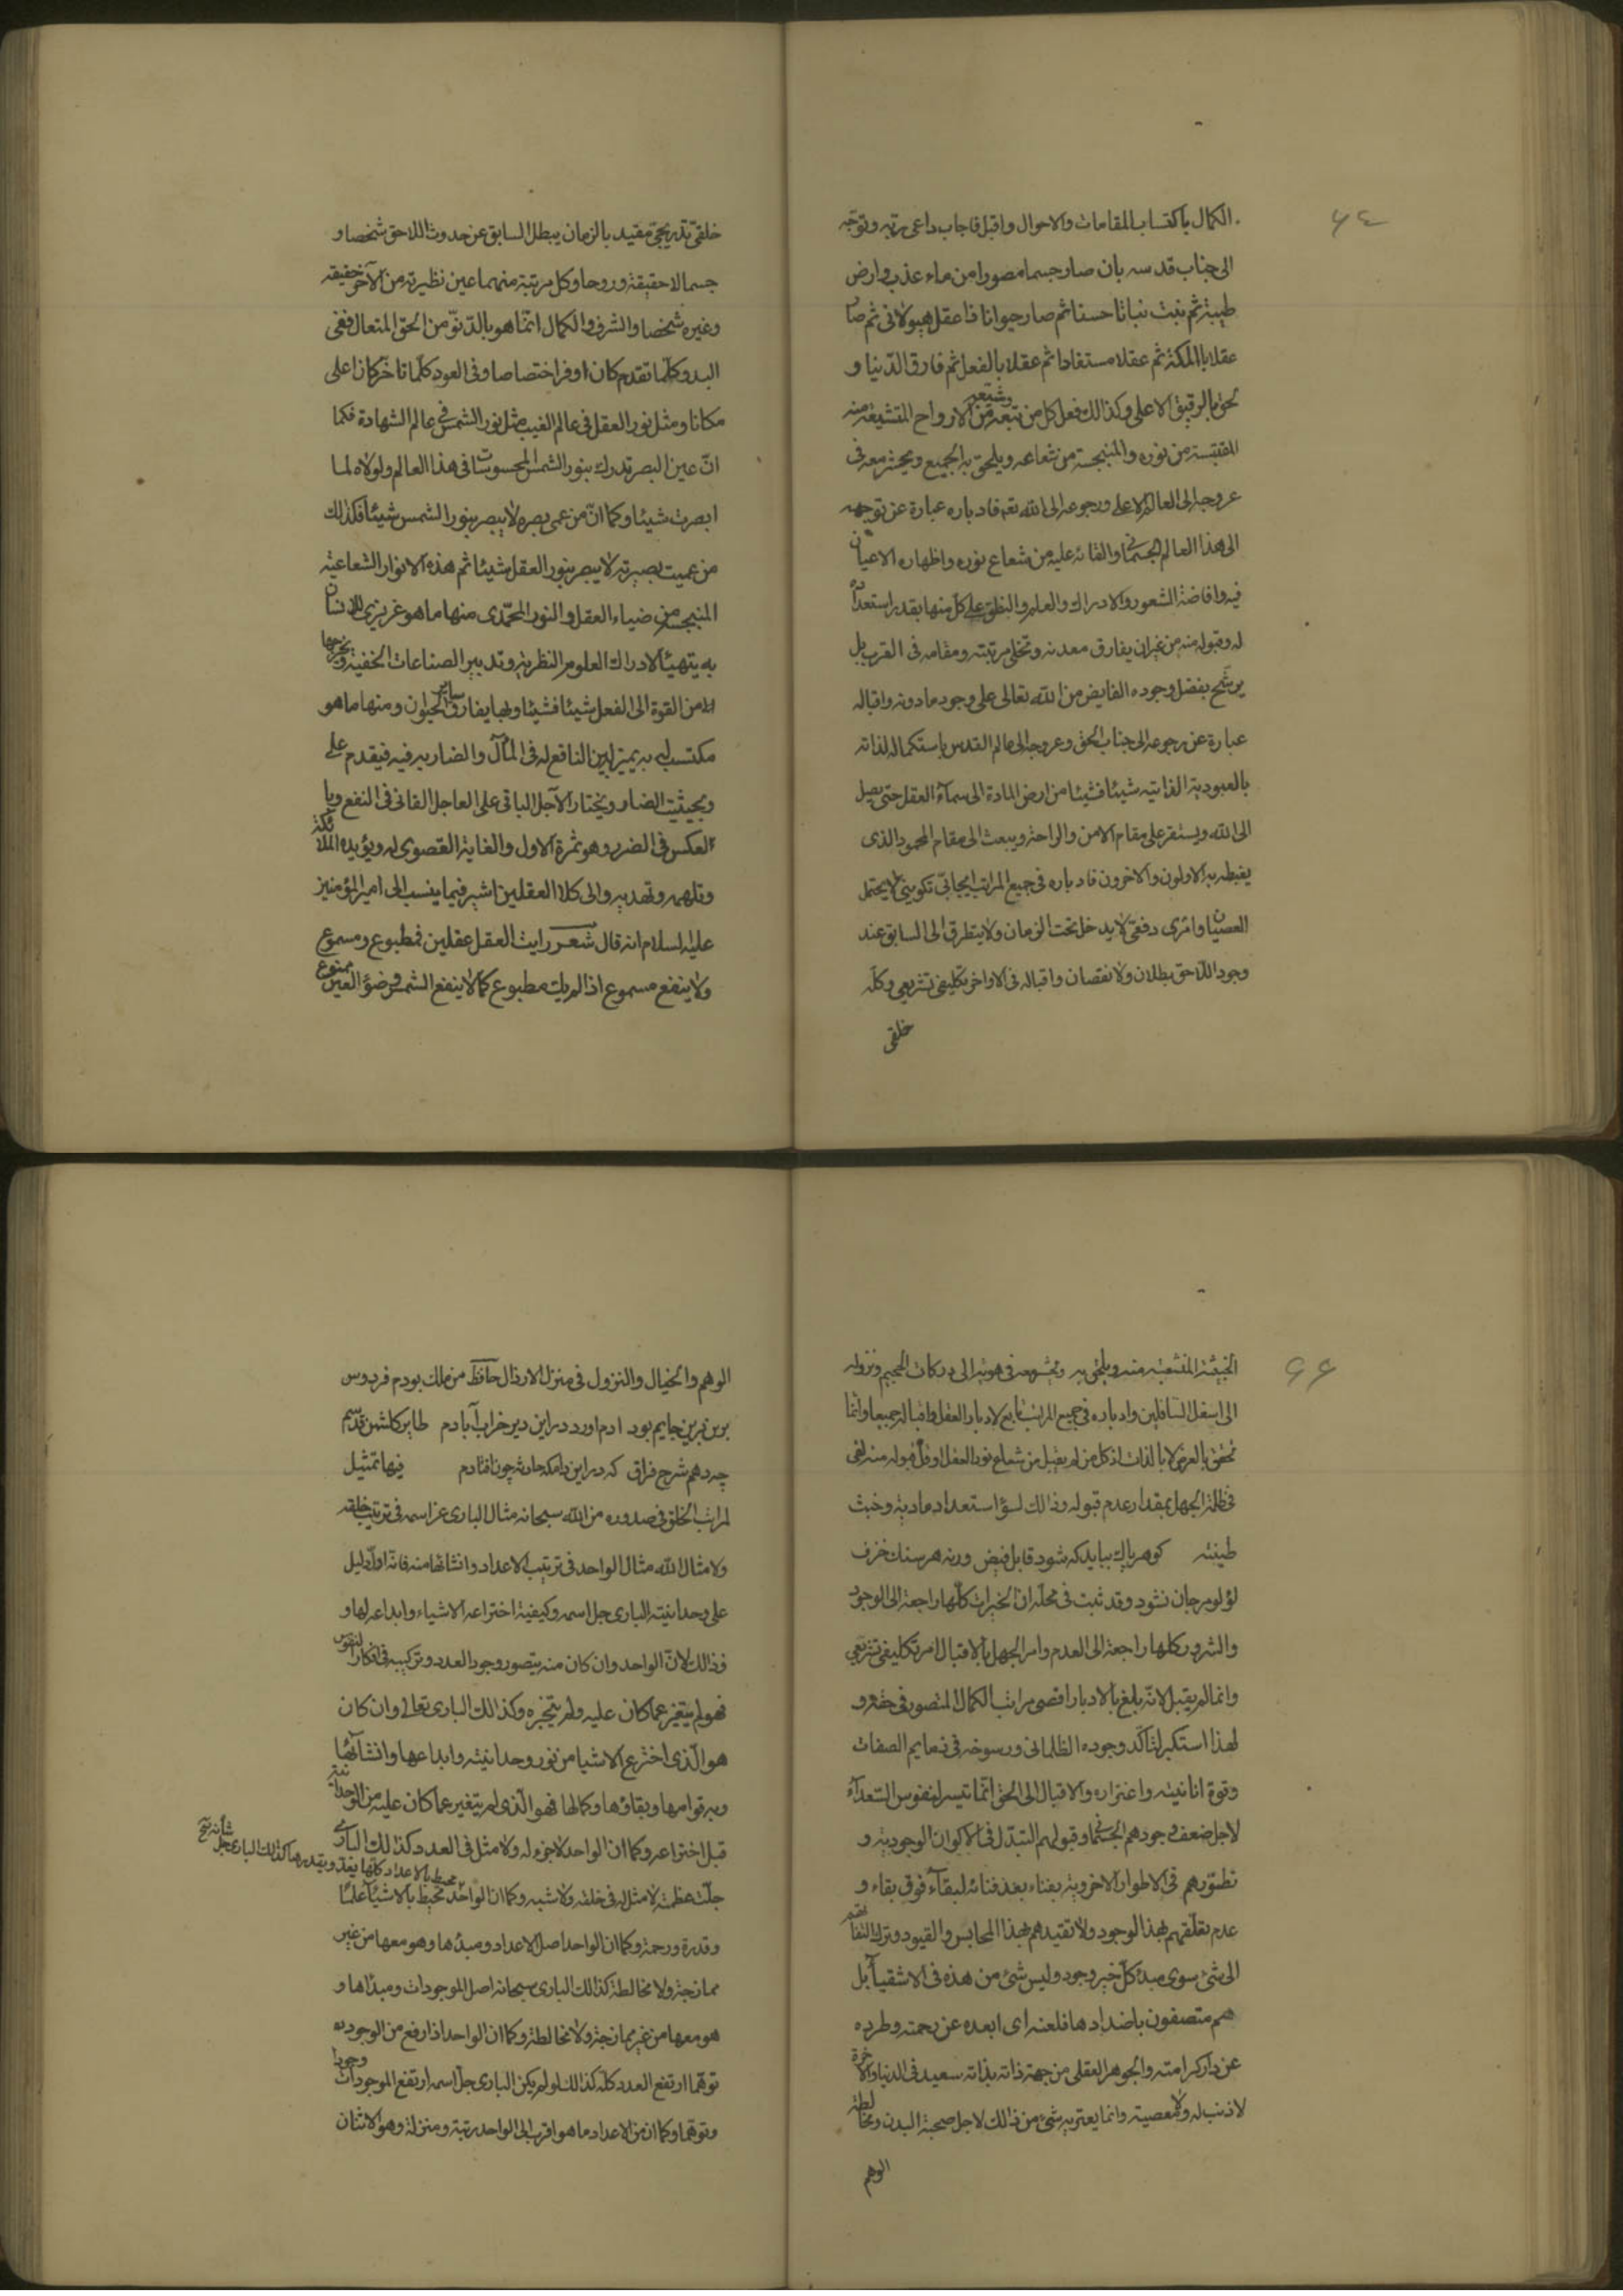 ٦٤
الكمال باكتساب المقامات والاحوال واقبل فاجاب داعى ربه وتوجّه
الى جناب قدسه بان صار جسما مصورا من ماء عذب وارض
طيبة ثم نبت نباتا حسنا ثم صار حيوانا ذا عقل هيولانى ثم صار
عقلا بالملكة ثم عقلا مستفادا ثم عقلا بالفعل ثم فارق الدّنيا و
لحق بالرفيق الاعلى وكذالك فعل كل من تبعه وشيّعه من الارواح المتشيعة منه
المقتبسة من نوره والمنبجسة من شعاعه ويلحق به الجميع ويحشر معه فى
عروجه الى العالم الاعلى ورجوعه الى الله تعه فادباره عبارة عن توجهه
الى هذا العالم الجسمانى والقائه عليه من شعاع نوره واظهاره الاعيان
فيه وافاضة الشعور والادراك والعلم والنطق على كل منها بقدر استعداد
له وقبوله منه من غير ان يفارق معدنه وتخلى مرتبته ومقامه فى القرب بل
يرشّح بفضل وجوده الفايض من الله تعالى على وجود مادونه واقباله
عبارة عن رجوعه الى جناب الحق وعروجه الى عالم القدس باستكماله لذاته
بالعبودية الذاتيه شيئا فشيئا من ارض المادة الى سماء العقل حتى يصل
الى الله ويستقر على مقام الامن والراحة ويبعث الى مقام المحمود الذى
يغبطه به الاولون والاخرون فادباره فى جميع المراتب ايجابىّ تكوينى لا يحتمل
العصيان وامرى دفعى لا يدخل تحت الزمان ولا يتطرق الى السابق عند
وجود اللاحق بطلان ولا نقصان واقباله فى الاواخر تكليفى تشريعى وكله
خلقى
خلقى تدريجى مقيد بالزمان يبطل السابق عن حدوث اللاحق شخصا و
جسما لا حقيقة وروحا وكل مرتبة منهما عين نظيرته من الآخر حقيقه
وغيره شخصا والشرف والكمال انما هو بالدّنوّ من الحق المتعال ففى
البدو كلما تقدم كان اوفر اختصاصا وفى العود كلما تاخر كان اعلى
مكانا ومثل نور العقل فى عالم الغيب مثل نور الشمس فى عالم الشهادة فكما
انّ عين البصر تدرك بنور الشمس المحسوسات فى هذا العالم ولولاه لما
ابصرت شيئا وكما انّ من عمى بصره لا يبصر بنور الشمس شيئا فكذلك
من عميت بصيرته لا يبصر بنور العقل شيئا ثم هذه الانوار الشعاعية
المنبجسة من ضياء العقل والنور المحمّدى منها ما هو غريزى للانسان
به يتهيّأ لادراك العلوم النظرية وتدبير الصناعات الخفية ويخرجها
من القوة الى الفعل شيئا فشيئا وبها يفارق ساير الحيوان ومنها ما هو
مكتسب له به يميّز بين النافع له فى المآل والضار به فيه فيقدم على
ويجتنب الضار ويختار الآجل الباقى على العاجل الفانى فى النفع وبا
لعكس فى الضرر وهو ثمرة الاول والغاية القصوى له ويؤيده الملائكة
وتلهمه وتهديه والى كلا العقلين اشير فيما ينسب الى امير المؤمنين
عليه السلام انه قال شعر رايت العقل عقلين فمطبوع ومسموع
ولا ينفع مسموع اذا لم يك مطبوع كما لا ينفع الشمس وضوء العين ممنوع
٦٦
الخبيثة المنشعبة منه ويلحق به ويحشر معه فى هويّه الى دركات الجحيم ونزوله
الى اسفل السافلين وادباره فى جميع المراتب تابع لادبار العقل واقباله جميعا وانما
تحقق بالعرض لا بالذات اذ كل من لم يقبل من شعاع نور العقل اوقلّ قبوله منه بقى
فى ظلمة الجهل بمقدار عدم قبوله وذالك لسوء استعداد مادية وخبث
طينته كوهر پاك ببايد كه شود قابل فيض ورنه هر سنك خزف
لؤلؤ ومرجان نشود وقد ثبت فى محلّه ان الخيرات كلّها راجعة الى الوجود
والشرور كلها راجعة الى العدم وامر الجهل بالاقبال امر تكليفى تشريعى
وانما لم يقبل لانّه بلغ بالادبار اقصى مراتب الكمال المتصور فى حقه و
لهذا استكبر لتاكّد وجوده الظلمانى ورسوخه فى ذمايم الصفات
وقوة انانيته واغتراره والاقبال الى الحق انّما تيسر لنفوس السّعداء
لاجل ضعف وجودهم الجسمانى وقبولهم التبدّل فى الاكوان الوجودية و
تطوّرهم فى الاطوار الاخروية بفناء بعد فنائه لبقاء فوق بقاء و
عدم تعلّقهم بهذا الوجود ولا تقيدهم بهذا المحابس والقيود وترك التفاتهم
الى شئ سوى مبدء كلّ خير وجود وليس شئ من هذه فى الاشقياء بل
هم متصفون باضدادها فلعنه اى ابعده عن رحمته وطرده
عن دار كرامته والجوهر العقلى من جهة ذاته بذاته سعيد فى الدنيا والاخرة
لا ذنب له ولا معصية وانما يعتريه شئ من ذالك لاجل صحبة البدن ومخالطة
الوهم
الوهم والخيال والنزول فى منزل الارذال حافظ من ملك بودم فردوس
برين جايم بود ادم اورد دراين دير خراب آبادم طاير كلشن قدسم
چه دهم شرح فراق كه دراين دامكه حادثه چون افتادم فيها تمثيل
لمراتب الخلق فى صدوره من الله سبحانه مثال البارى عز اسمه فى ترتيب خلقه
ولا مثال لله مثال الواحد فى ترتيب الاعداد وانشائها منه فانّه اول دليل
على وحدانيته البارى جل اسمه وكيفية اختراعه الاشياء وابداعه لها و
وذالك لانّ الواحد وان كان منه يتصور وجود العدد وتركيبه فى افكار النفوس
فهو لم يتغير عما كان عليه ولم يتجزه وكذالك البارى تعالى وان كان
هو الّذى اخترع الاشيا من نور وحدانيته وابداعها وانشائها
وبه قوامها وبقاؤها وكمالها فهو الّذى لم يتغير عما كان عليه من الوحدانية
قبل اختراعه وكما ان الواحد لا جزء له ولا مثل فى العدد كذالك البارى
جلّت عظمته لا مثل له فى خلقه ولا شبه وكما ان الواحد محيط بالاشياء علما
محيط بالاعداد كلّها يعدّ ويقدرها كذالك البارى جل شانه
وقدرة ورحمة وكما ان الواحد اصل الاعداد ومبدئها وهو معها من غير
ممازجة ولا مخالطة كذالك البارى سبحانه اصل الموجودات ومبدأها و
هو معها من غير ممازجة ولا مخالطة وكما ان الواحد اذا رفع من الوجود
توهّما ارتفع العدد كله كذالك لو لم يكن البارى جل اسمه ارتفع الموجودات وجودا
وتوهّما وكما ان من الاعداد ما هو اقرب الى الواحد رتبة ومنزلة وهو الاثنان